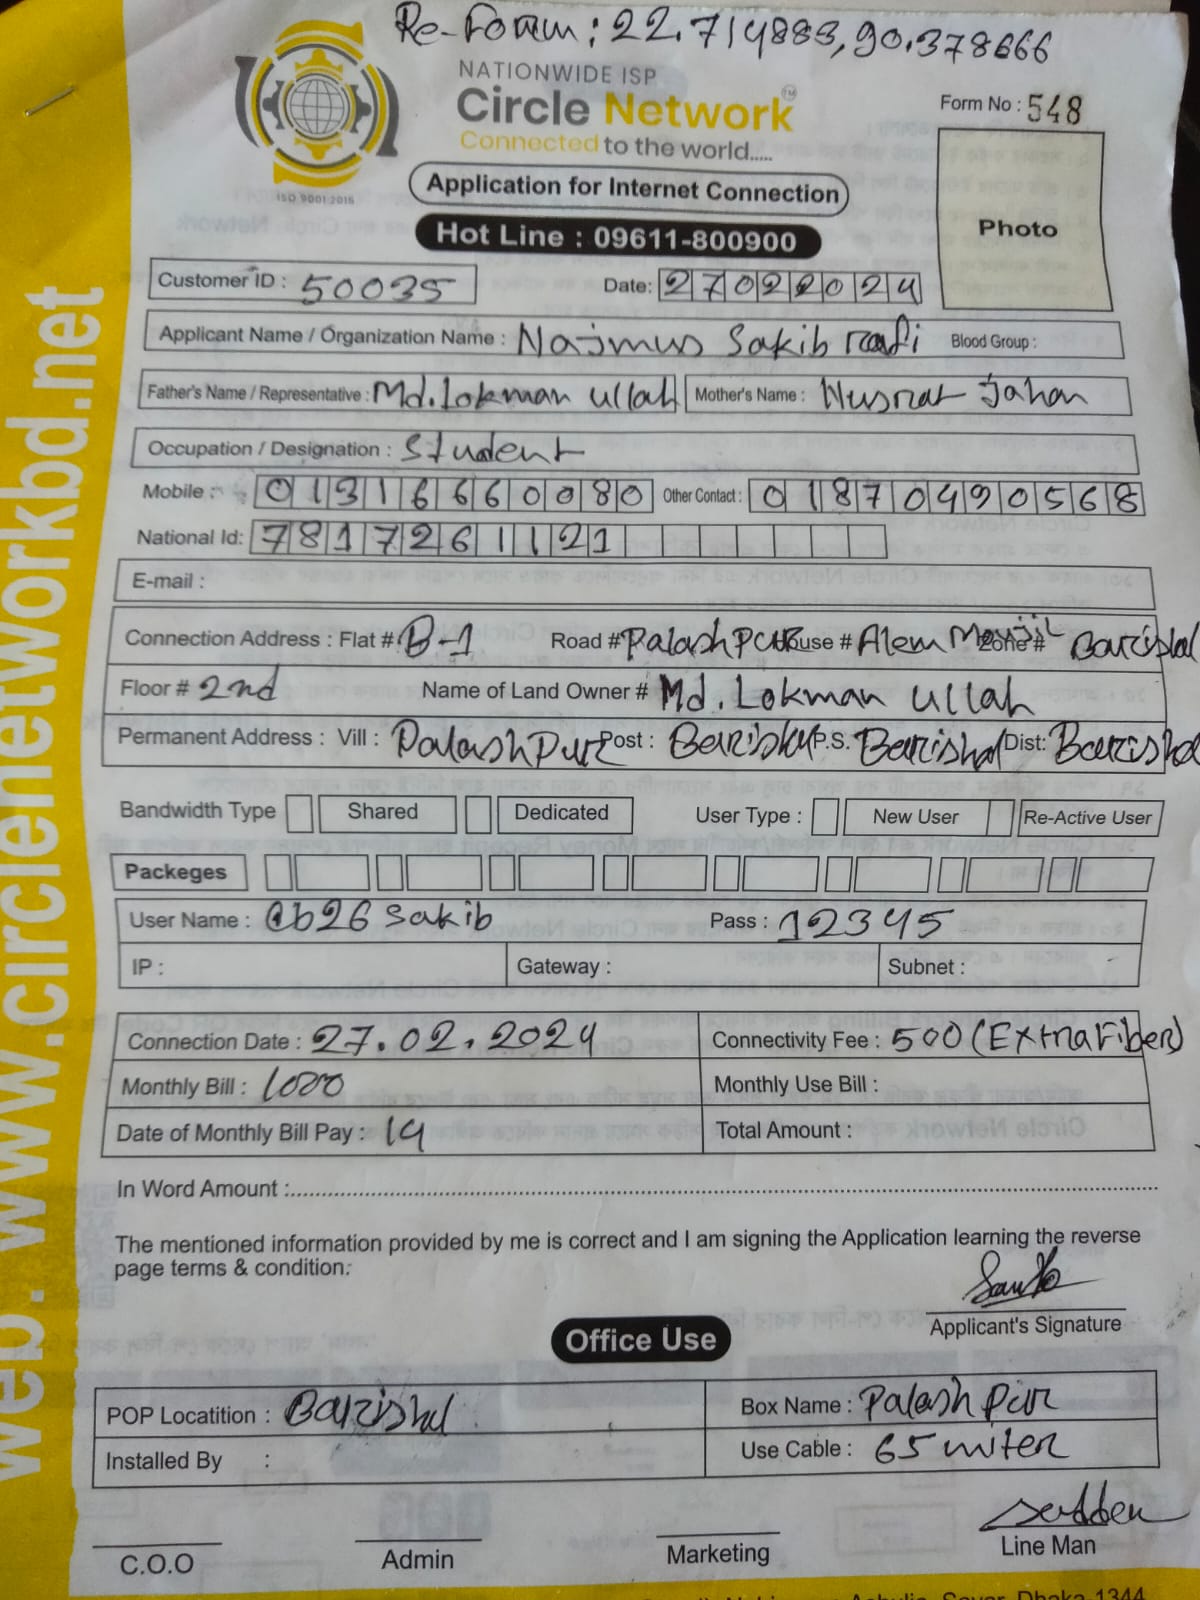 Re-Form: 22.714883,90.378666
NATIONWIDE ISP
Circle Network™
Connected to the world.....
ISO 9001:2015
Form No : 548
Application for Internet Connection
Photo
Hot Line : 09611-800900
Customer ID : 50035 Date: 27022024
Applicant Name / Organization Name : Najmus Sakib rafi Blood Group :
Father's Name / Representative : Md. Lokman ullah Mother's Name : Nusrat Jahan
Occupation / Designation : Student
Mobile : 01316660080 Other Contact : 01870490568
National Id: 7817261121
E-mail :
Connection Address : Flat # B-1 Road # Palashpur House # Alem Monjil Zone # Barishal
Floor # 2nd Name of Land Owner # Md. Lokman ullah
Permanent Address : Vill : Palashpur Post : Barishal P.S. Barishal Dist: Barishal
Bandwidth Type Shared Dedicated User Type : New User Re-Active User
Packeges
User Name : cb26sakib Pass : 12345
IP : Gateway : Subnet :
Connection Date : 27.02.2024 Connectivity Fee : 500 (Extra Fiber)
Monthly Bill : 1000 Monthly Use Bill :
Date of Monthly Bill Pay : 14 Total Amount :
In Word Amount :
The mentioned information provided by me is correct and I am signing the Application learning the reverse
page terms & condition:
Applicant's Signature
Office Use
POP Locatition : Barishal Box Name : Palashpur
Installed By : Use Cable : 65 miter
C.O.O Admin Marketing Line Man
Dhaka 1344
web: www.circlenetworkbd.net